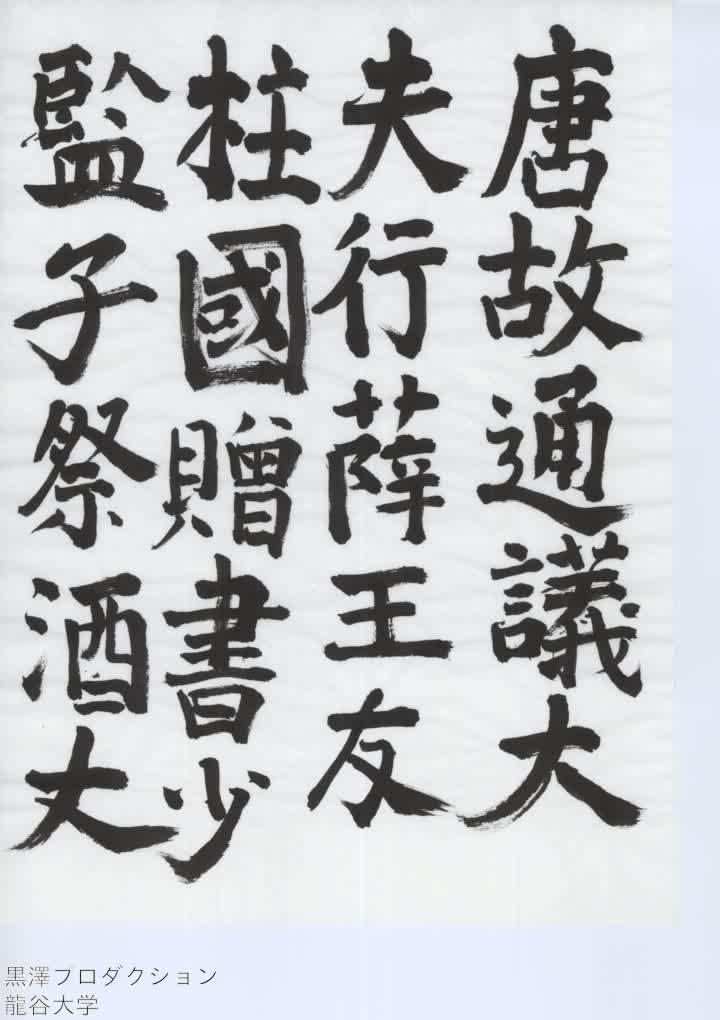 唐故通議大
夫行薛王友
柱國贈書少
監子祭酒丈
黒澤プロダクション
龍谷大学